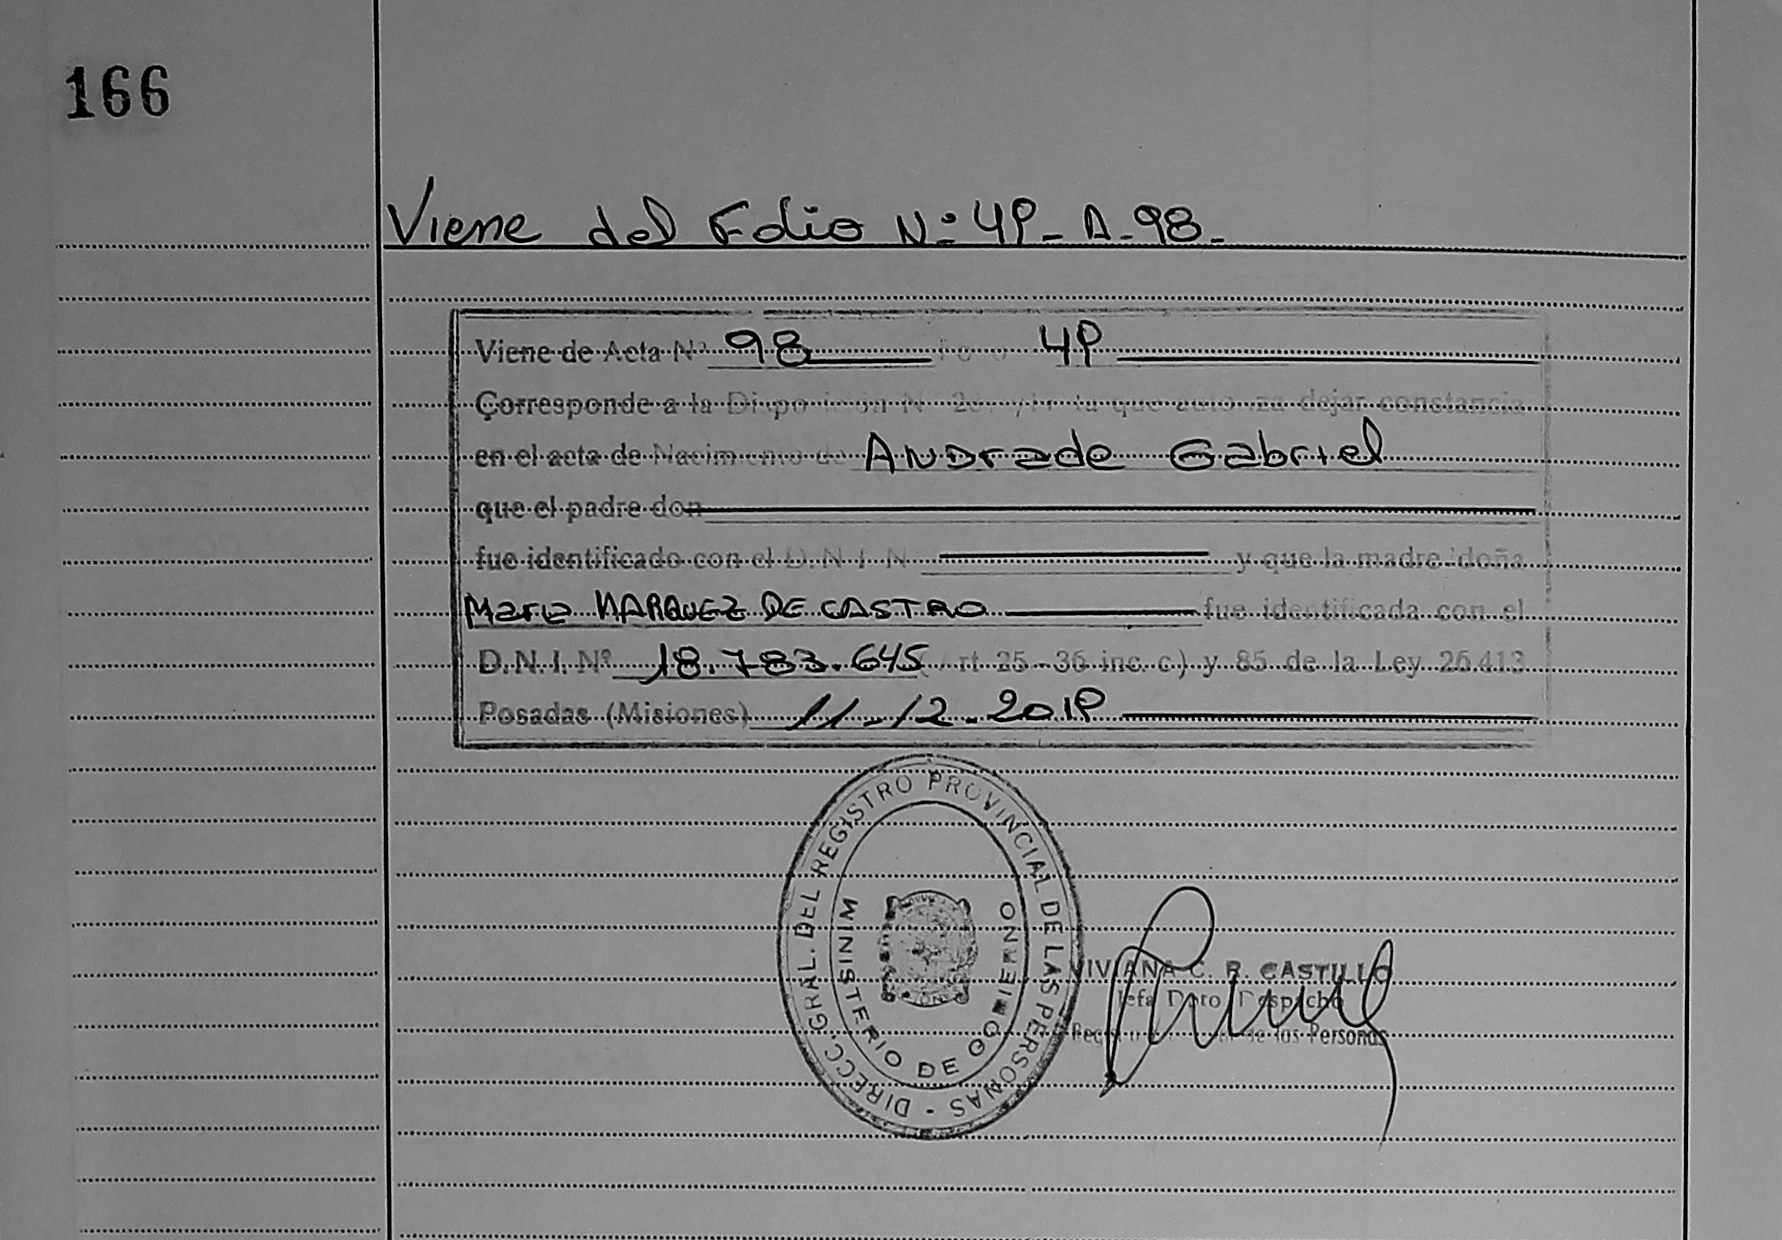 166
Viene del Folio Nº 49 - A - 98 -
Viene de Acta Nº 98 49
Corresponde a la Disposición Nº que autoriza dejar constancia
en el acta de Nacimiento de Andrade Gabriel
que el padre don
fue identificado con el D. N. I. N y que la madre doña
Maria MARQUEZ DE CASTRO fue identificada con el
D.N.I. Nº 18.783.645 (Art. 25 - 36 inc. c) y 85 de la Ley 26.413
Posadas (Misiones) 11-12-2019
DIRECC. GRAL. DEL REGISTRO PROVINCIAL DE LAS PERSONAS -
MINISTERIO DE GOBIERNO
VIVIANA C. R. CASTILLO
Jefa Dpto. Despacho
de las Personas